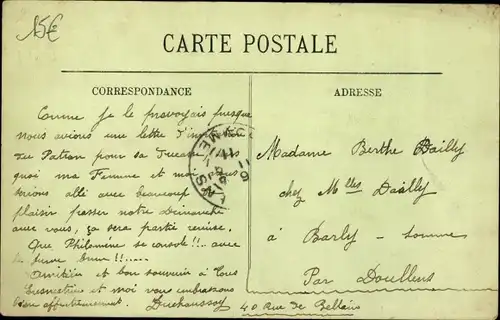 15€
CARTE POSTALE
CORRESPONDANCE
ADRESSE
Comme je le prevoyais presque
nous avions une lettre d'
du Patron pour sa Ducasse sans
quoi ma Femme et moi nous
serions allé avec beaucoup
plaisir passer notre Dimanche
avec vous, ça sera partie remise.
Que Philomène se console!!.. avec
le
Amitiés et bon souvenir à tous
et moi vous embrassons
bien affectueusement. Duchaussoy
40 Rue de
Madame Berthe Dailly
chez Mlles Dailly
à Barly - Somme
Par Doullens